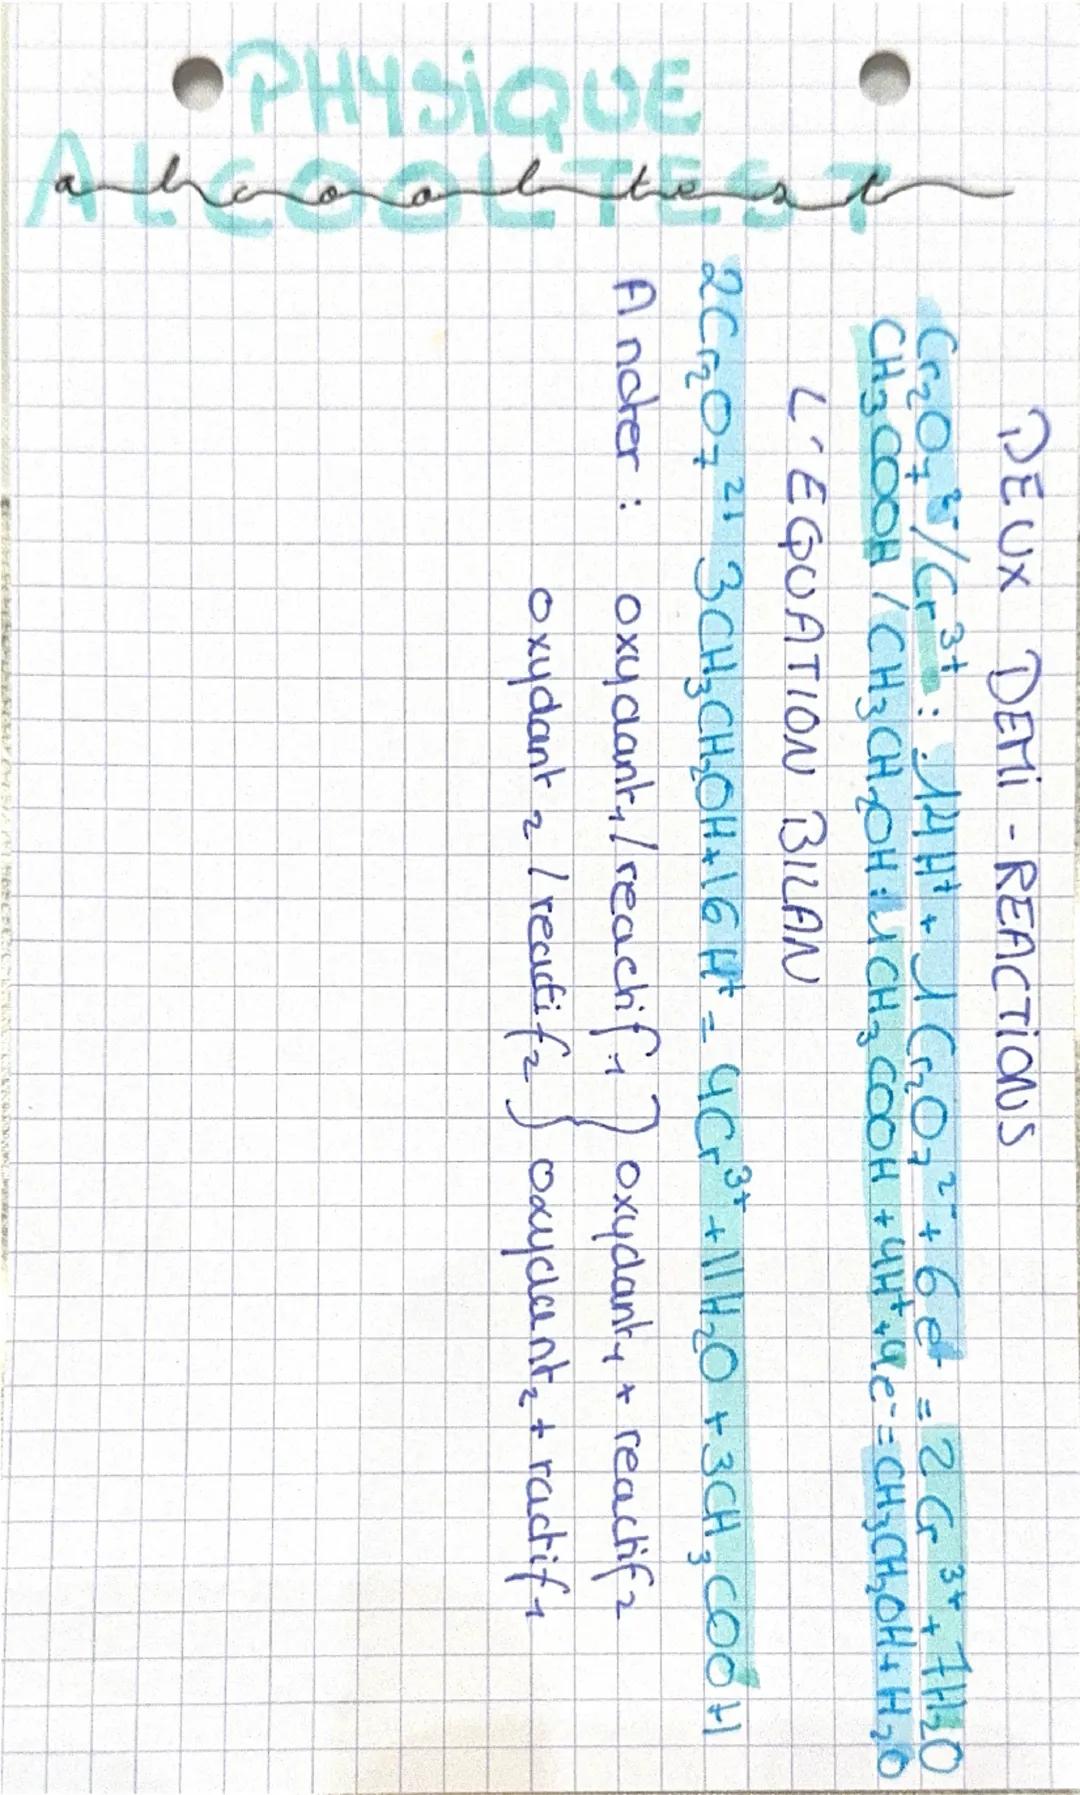 PHYSIQUE
ALCOOLTEST
alcooltest
DEUX DEMI-REACTIONS
Cr₂O₇²⁻/Cr³⁺ : 14H⁺ + 1Cr₂O₇²⁻ + 6e⁻ = 2Cr³⁺ + 7H₂O
CH₃COOH / CH₃CH₂OH : 1CH₃COOH + 4H⁺ + 4e⁻ = CH₃CH₂OH + H₂O
L'EQUATION BILAN
2Cr₂O₇²⁺ 3CH₃CH₂OH + 16H⁺ = 4Cr³⁺ + 11H₂O + 3CH₃COOH
A noter : oxydant₁ / reactif₁ } oxydant₁ + reactif₂
oxydant₂ / reactif₂ } oxydant₂ + ractif₁